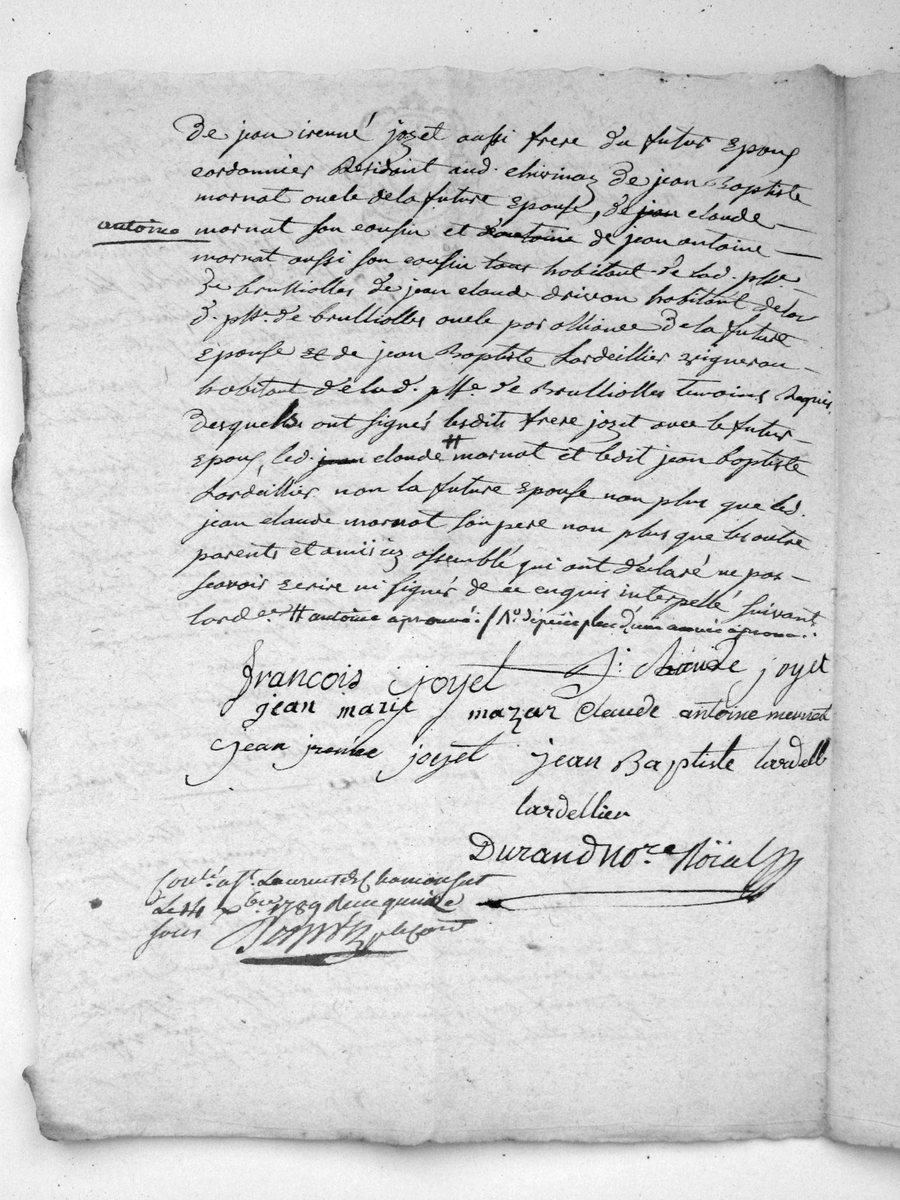 De jean irenné jozet aussi frere du futur Epoux
cordonnier Résidant aud. chivinaz de jean Baptiste
mornat oncle dela future Epouse, de jean claude
antoine
mornat son cousin et d'antoine de jean antoine
mornat aussi son cousin tous habitant de lad. psse.
de brulliolles de jean claude drivon habitant delad
d. psse. de brulliolles oncle par alliance de la future
Epouse et de jean Baptiste Lardeillier vigneron
habitant de lad. psse. de Brulliolles temoins Requis
desquels ont signés lesdits frere jozet avec le futur
Epoux, led. jean claude # mornat et ledit jean baptiste
Lardeillier non la future Epouse non plus que led.
jean claude mornat son pere non plus que les autre
parents et amis assemblé qui ont déclaré ne pas
scavoir ecrire ni signés de ce enquis interpellé suivant
lord.ce # antoine aprouvé
françois joyet claude joyet
jean marie mazar Claude antoine mournat
jean irenée joyet jean Baptiste lardell
lardellier
Durand No.re Roïal
Con.lé a St. Laurent de Chamousset
Le 14 1789 Reçu quinze
sous